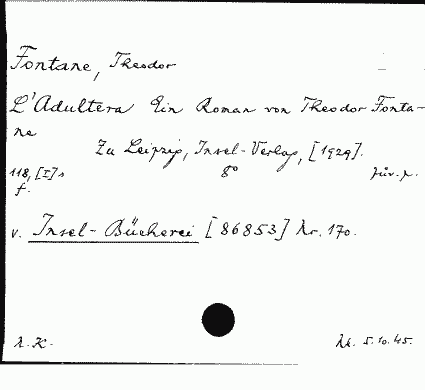 Fontane, Theodor
L'Adultera Ein Roman von Theodor Fonta-
ne
Zu Leipzig, Insel-Verlag, [1929].
118, [I] s 8° jür. p.
f.
v. Insel-Bücherei [86853] Nr. 170.
A. K. kk. 5.10.45.